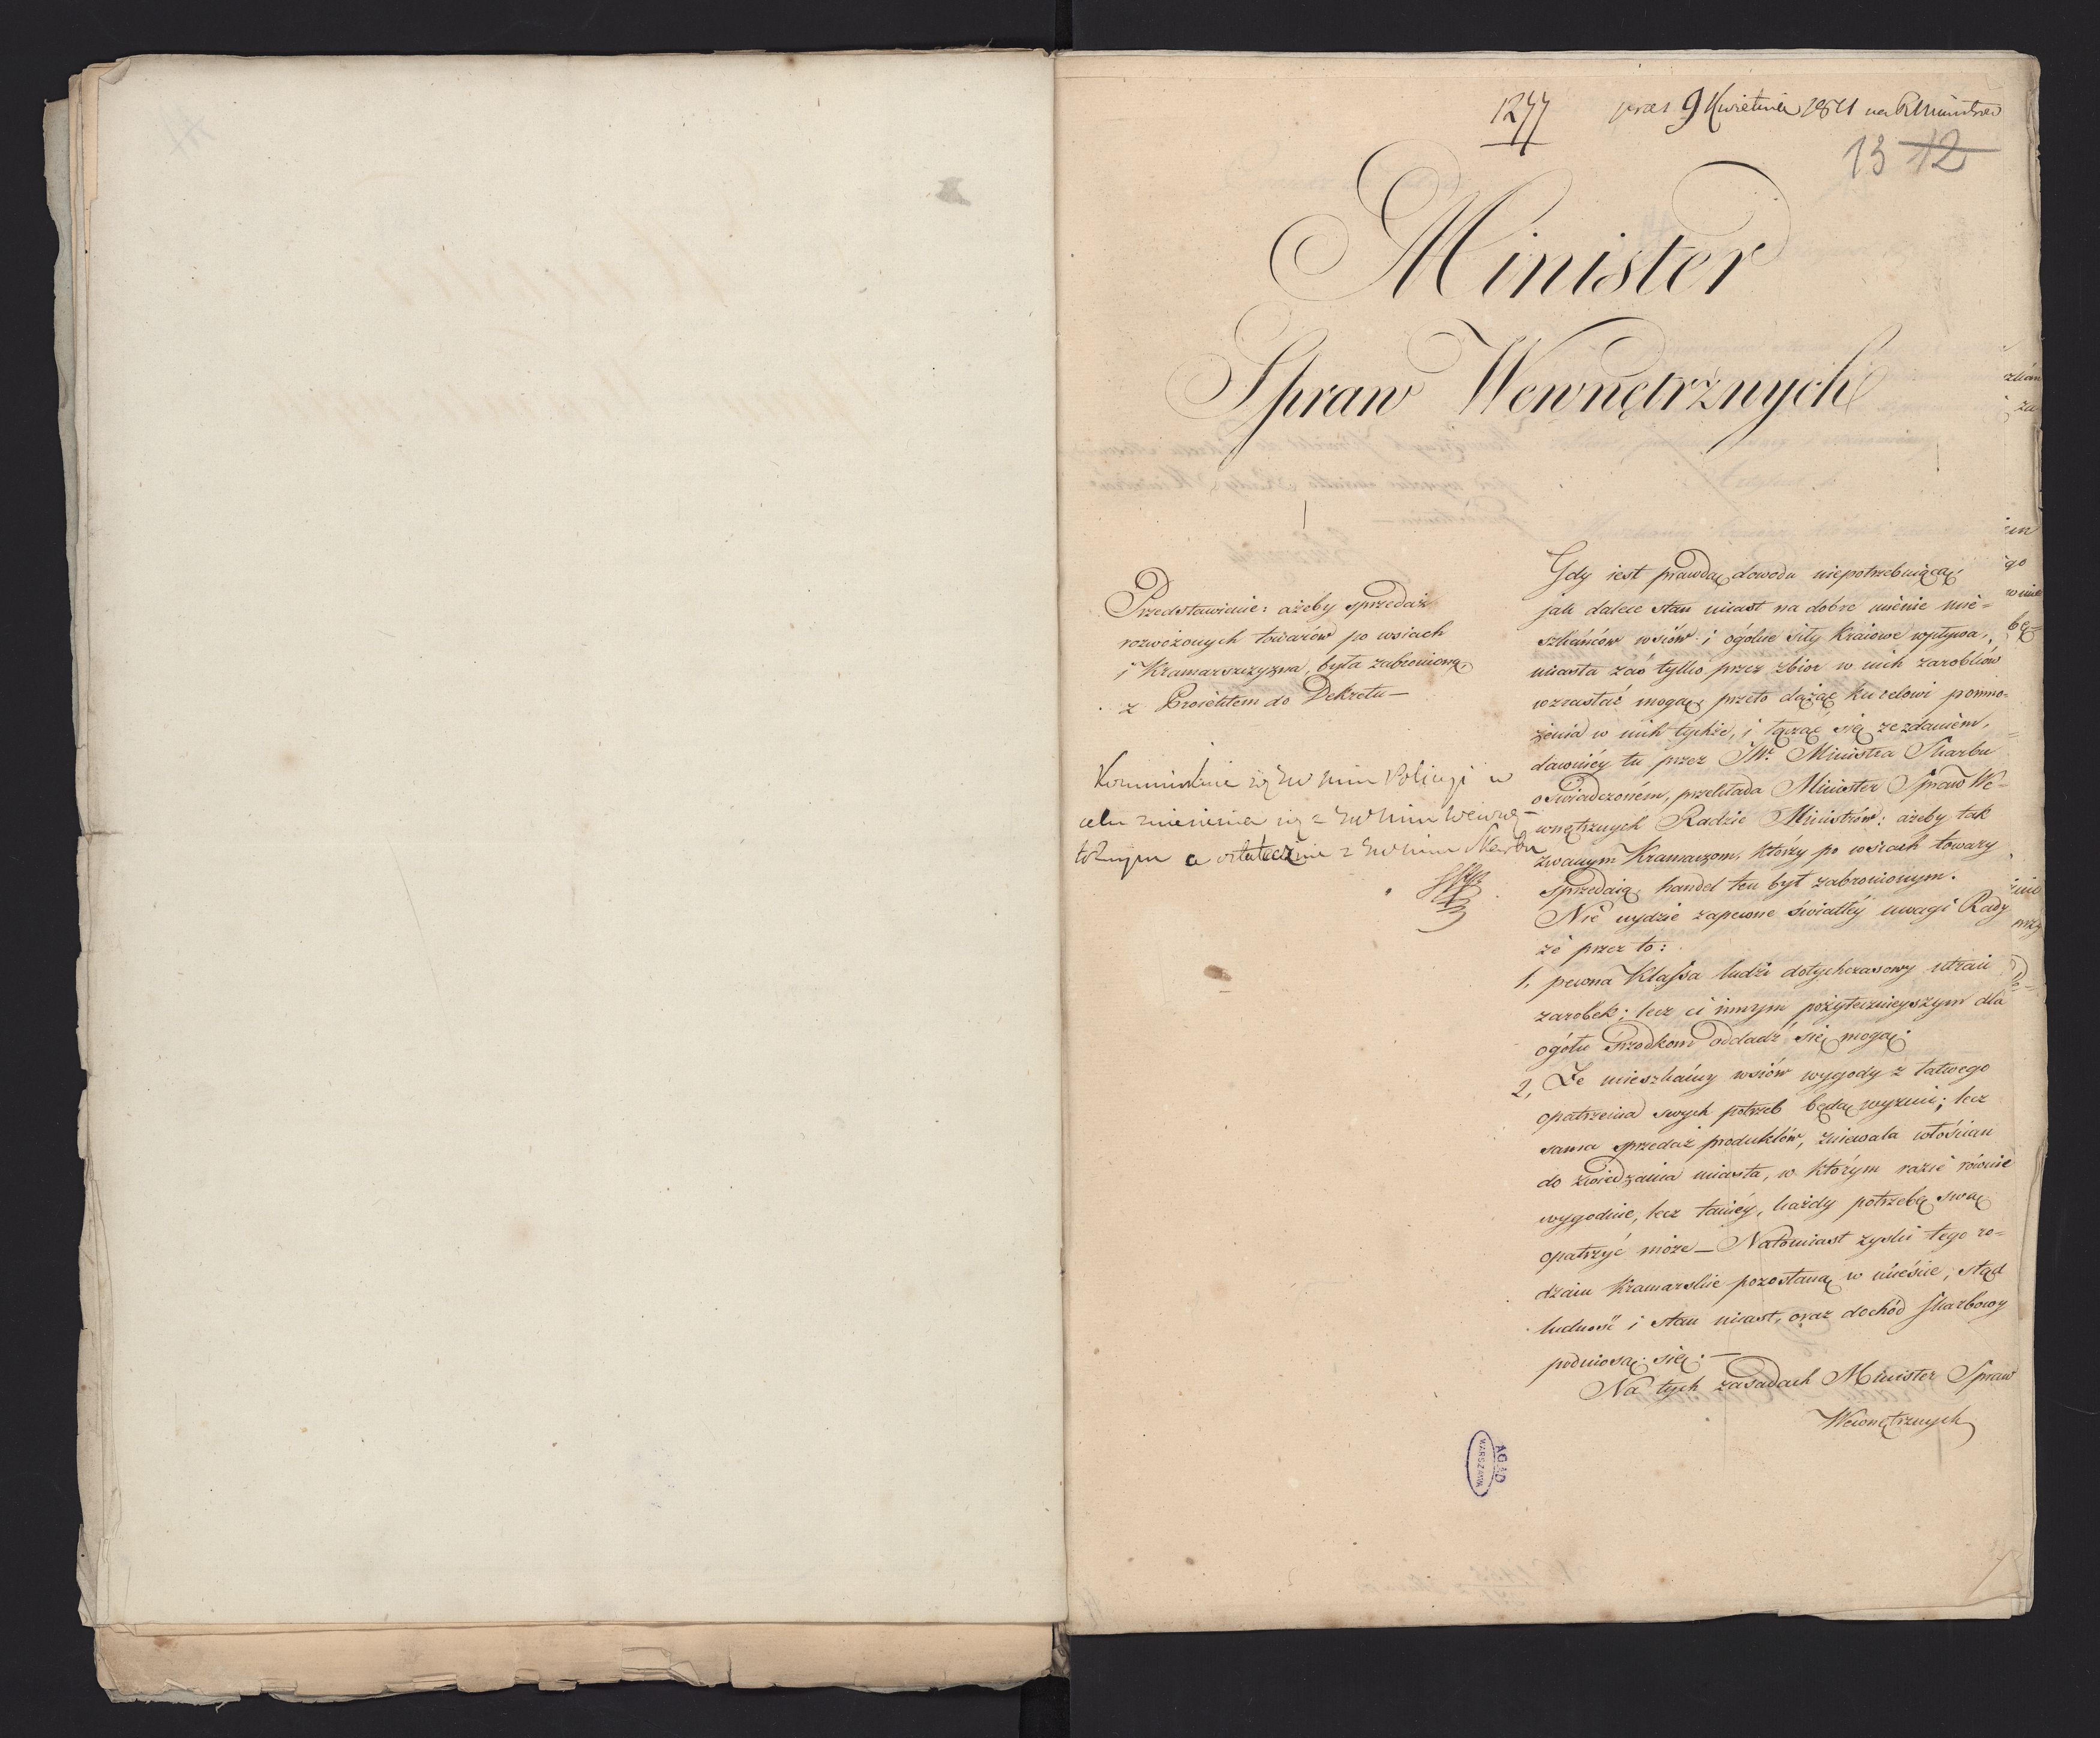 1277
prez 9 Kwietnia 1811 na R Ministrów
13 12
Minister
Spraw Wewnętrznych
Przedstawienie: ażeby sprzedaż
rozwożonych towarów po wsiach
i Kramarszczyzna, była zabronioną,
z Proiektem do Dekretu —
Kommunikuie się JW Min Policyi w
celu zniesienia się z JW Min Wewnę-
trznym a ostatecznie z JW Min Skarbu
Gdy iest prawdą dowodu niepotrzebuiącą,
jak dalece stan miast na dobre mienie mie-
szkańców wsiów i ogólne siły Kraiowe wpływa,
miasta zaś tylko przez zbior w nich zarobków
wzrastać mogą, przeto dążąc ku celowi pomno-
żenia w nich tychże, i łącząc się ze zdaniem,
dawniéy tu przez JW. Ministra Skarbu
oświadczoném, przekłada Minister Spraw We-
wnętrznych Radzie Ministrów: ażeby tak
zwanym Kramarzom, którzy po wsiach towary
sprzedaią, handel ten był zabronionym.
Nie uydzie zapewne światłéy uwagi Rady
że przez to:
1, pewna Klassa ludzi dotychczasowy utraci
zarobek; lecz ci innym pożytecznieyszym dla
ogółu śrzodkom oddadź się mogą.
2, Że mieszkańcy wsiów wygody z łatwego
opatrzenia swych potrzeb będą wyzuci; lecz
sama sprzedaż produktów, zniewala włościan
do zwiedzania miasta, w którym razie równie
wygodnie, lecz taniéy, każdy potrzebę swą
opatrzyć może — Natomiast zyski tego ro-
dzaiu Kramarskie pozostaną w mieście, stąd
ludność i stan miast, oraz dochód Skarbowy
podniosą się. —
Na tych zasadach Minister Spraw
Wewnętrznych
AGAD
WARSZAWA